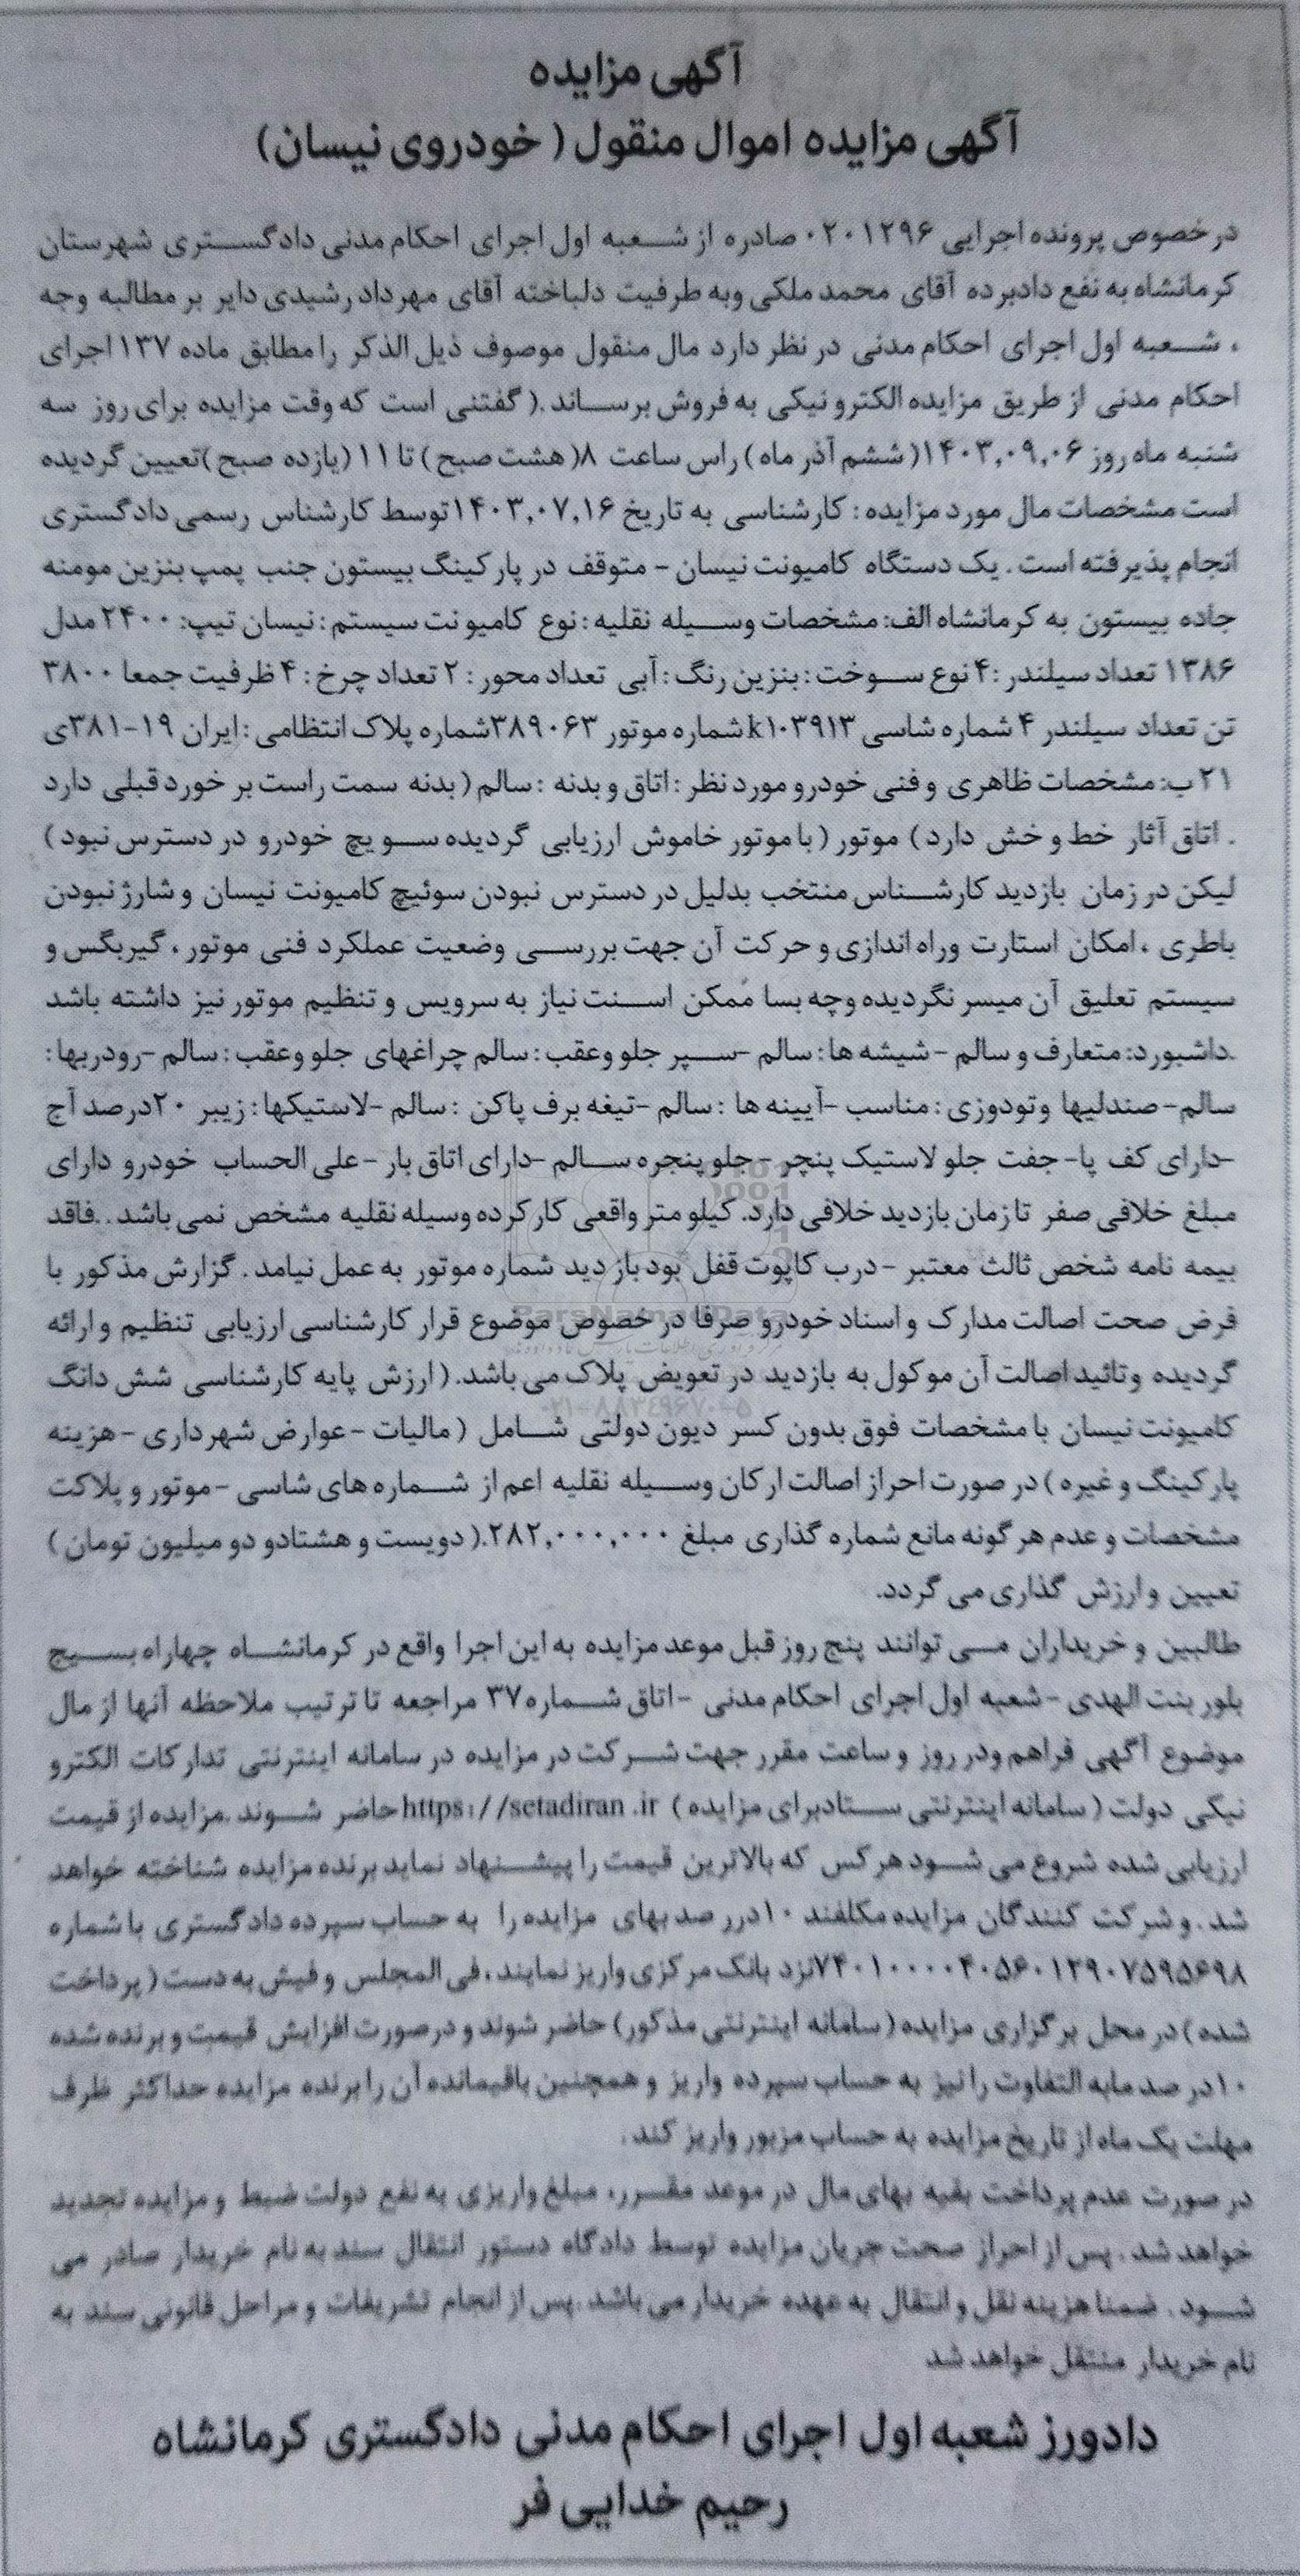 آگهی مزایده
آگهی مزایده اموال منقول ( خودروی نیسان)
درخصوص پرونده اجرایی ۰۲۰۱۲۹۶ صادره از شعبه اول اجرای احکام مدنی دادگستری شهرستان
کرمانشاه به نفع دادبرده آقای محمد ملکی وبه طرفیت دلباخته آقای مهرداد رشیدی دایر بر مطالبه وجه
، شعبه اول اجرای احکام مدنی در نظر دارد مال منقول موصوف ذیل الذکر را مطابق ماده ۱۳۷ اجرای
احکام مدنی از طریق مزایده الکترونیکی به فروش برساند .( گفتنی است که وقت مزایده برای روز سه
شنبه ماه روز ۱۴۰۳,۰۹,۰۶( ششم آذر ماه ) راس ساعت ۸( هشت صبح ) تا ۱۱ (یازده صبح )تعیین گردیده
است مشخصات مال مورد مزایده : کارشناسی به تاریخ ۱۴۰۳,۰۷,۱۶توسط کارشناس رسمی دادگستری
انجام پذیرفته است . یک دستگاه کامیونت نیسان – متوقف در پارکینگ بیستون جنب پمپ بنزین مومنه
جاده بیستون به کرمانشاه الف: مشخصات وسیله نقلیه : نوع کامیونت سیستم : نیسان تیپ: ۲۴۰۰ مدل
۱۳۸۶ تعداد سیلندر :۴ نوع سوخت : بنزین رنگ : آبی تعداد محور : ۲ تعداد چرخ : ۴ ظرفیت جمعا ۳۸۰۰
تن تعداد سیلندر ۴ شماره شاسی k۱۰۳۹۱۳ شماره موتور ۳۸۹۰۶۳شماره پلاک انتظامی : ایران ۱۹-۳۸۱ی
۲۱ ب: مشخصات ظاهری و فنی خودرو مورد نظر : اتاق و بدنه : سالم ( بدنه سمت راست برخورد قبلی دارد
. اتاق آثار خط و خش دارد ) موتور ( با موتور خاموش ارزیابی گردیده سویچ خودرو در دسترس نبود )
لیکن در زمان بازدید کارشناس منتخب بدلیل در دسترس نبودن سوئیچ کامیونت نیسان و شارژ نبودن
باطری ، امکان استارت وراه اندازی و حرکت آن جهت بررسی وضعیت عملکرد فنی موتور ، گیربگس و
سیستم تعلیق آن میسر نگردیده وچه بسا ممکن اسنت نیاز به سرویس و تنظیم موتور نیز داشته باشد
.داشبورد: متعارف و سالم – شیشه ها : سالم –سپر جلو وعقب : سالم چراغهای جلو وعقب : سالم –رودریها :
سالم– صندلیها وتودوزی : مناسب –آیینه ها : سالم –تیغه برف پاکن : سالم –لاستیکها : زیبر ۲۰درصد آج
–دارای کف پا– جفت جلو لاستیک پنچر – جلو پنجره سالم –دارای اتاق بار – علی الحساب خودرو دارای
مبلغ خلافی صفر تا زمان بازدید خلافی دارد. کیلو متر واقعی کارکرده وسیله نقلیه مشخص نمی باشد ..فاقد
بیمه نامه شخص ثالث معتبر – درب کاپوت قفل بود بازدید شماره موتور به عمل نیامد . گزارش مذکور با
فرض صحت اصالت مدارک و اسناد خودرو صرفا در خصوص موضوع قرار کارشناسی ارزیابی تنظیم و ارائه
گردیده وتائید اصالت آن موکول به بازدید در تعویض پلاک می باشد. ( ارزش پایه کارشناسی شش دانگ
کامیونت نیسان با مشخصات فوق بدون کسر دیون دولتی شامل ( مالیات –عوارض شهرداری –هزینه
پارکینگ و غیره ) در صورت احراز اصالت ارکان وسیله نقلیه اعم از شماره های شاسی –موتور و پلاکت
مشخصات و عدم هر گونه مانع شماره گذاری مبلغ ۲۸۲,۰۰۰,۰۰۰.( دویست و هشتادو دو میلیون تومان )
تعیین و ارزش گذاری می گردد.
طالبین و خریداران می توانند پنج روز قبل موعد مزایده به این اجرا واقع در کرمانشاه چهاراه بسیج
بلور بنت الهدی –شعبه اول اجرای احکام مدنی –اتاق شماره ۳۷ مراجعه تا ترتیب ملاحظه آنها از مال
موضوع آگهی فراهم ودر روز و ساعت مقرر جهت شرکت در مزایده در سامانه اینترنتی تدارکات الکترو
نیکی دولت ( سامانه اینترنتی ستادبرای مزایده ) https://setadiran .ir حاضر شوند .مزایده از قیمت
ارزیابی شده شروع می شود هر کس که بالاترین قیمت را پیشنهاد نماید برنده مزایده شناخته خواهد
شد . و شرکت کنندگان مزایده مکلفند ۱۰درر صد بهای مزایده را به حساب سپرده دادگستری با شماره
نزد بانک مرکزی واریز نمایند ، فی المجلس و فیش به دست ( پرداخت
شده ) در محل برگزاری مزایده ( سامانه اینترنتی مذکور) حاضر شوند و درصورت افزایش قیمت و برنده شده
۱۰در صد مابه التفاوت را نیز به حساب سپرده واریز و همچنین باقیمانده آن را برنده مزایده حداکثر ظرف
مهلت یک ماه از تاریخ مزایده به حساب مزبور واریز کند .
در صورت عدم پرداخت بقیه بهای مال در موعد مقرر، مبلغ واریزی به نفع دولت ضبط و مزایده تجدید
خواهد شد . پس از احراز صحت جریان مزایده توسط دادگاه دستور انتقال سند به نام خریدار صادر می
شود . ضمنا هزینه نقل و انتقال به عهده خریدار می باشد .پس از انجام تشریفات و مراحل قانونی سند به
نام خریدار منتقل خواهد شد
دادورز شعبه اول اجرای احکام مدنی دادگستری کرمانشاه
رحیم خدایی فر